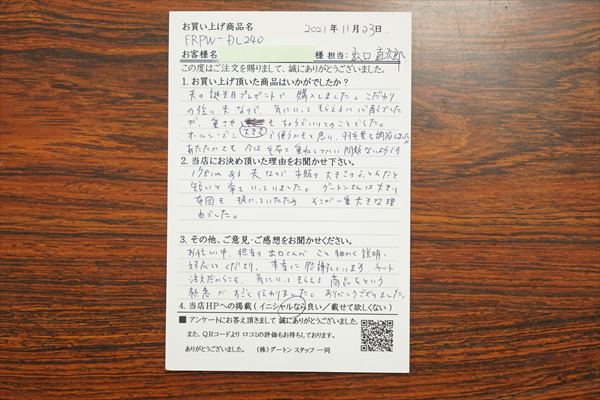 お買い上げ商品名 2021年11月23日
FRPW-DL240
お客様名 様 担当:出口直次郎
この度はご注文を賜りまして、誠にありがとうございました。
1. お買い上げ頂いた商品はいかがでしたか?
夫の誕生日プレゼントで購入しました。こだわり
の強い夫なので、気にいってもらえるか心配でした
が、重さや も ちょうどいいとのことでした。
オールシーズン 大きさ で使うかもと思い、羽毛量を調節しました。
あたたかでも 今は 毛布と重ねてつかい 問題ないようです
2. 当店にお決め頂いた理由をお聞かせ下さい。
ある夫なので 市販の大きさのふとんだと
短いと常々いっていました。グートンさんは大きい
布団も扱っていたため そこが一番大きな理
由でした。
3. その他、ご意見・ご感想をお聞かせください。
お忙しい中、担当の出口さんが こと細かく説明、
対応いくださり、本当に感謝しています。ネット
注文だからこそ、気にいってもらえる商品をという
熱意が すごく伝わりました。ありがとうございました。
4. 当店HPへの掲載(イニシャルなら良い/載せて欲しくない)
■ アンケートにお答え頂きまして 誠にありがとうございました。
また、QRコードより 口コミの評価もお待ちしております。
ありがとうございました。 (株)グートン スタッフ 一同